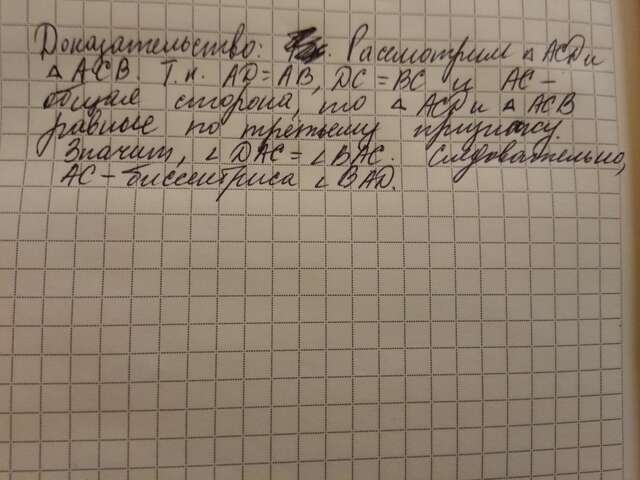 Доказательство: Рассмотрим △ ACD и
△ ACB. Т.к. AD = AB, DC = BC и AC –
общая сторона, то △ ACD и △ ACB
равные по третьему признаку.
Значит, ∠ DAC = ∠ BAC. Следовательно,
AC – биссектриса ∠ BAD.